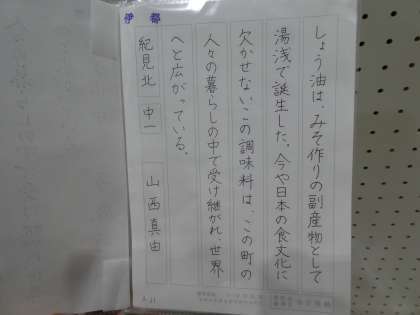 しょう油は、みそ作りの副産物として
湯浅で誕生した。今や日本の食文化に
欠かせないこの調味料は、この町の
人々の暮らしの中で受け継がれ、世界
へと広がっている。
伊都
紀見北 中一 山西真由